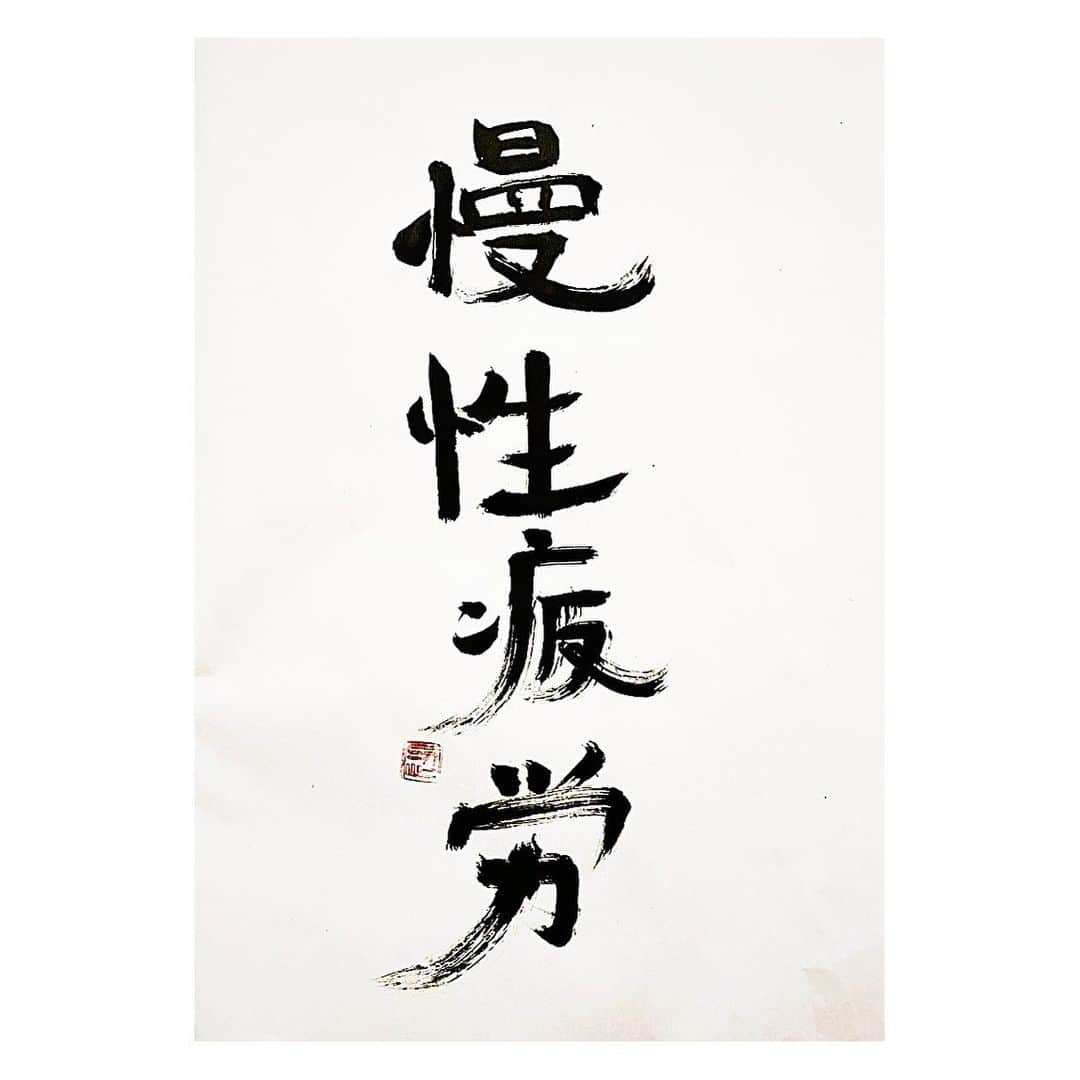 慢性疲労